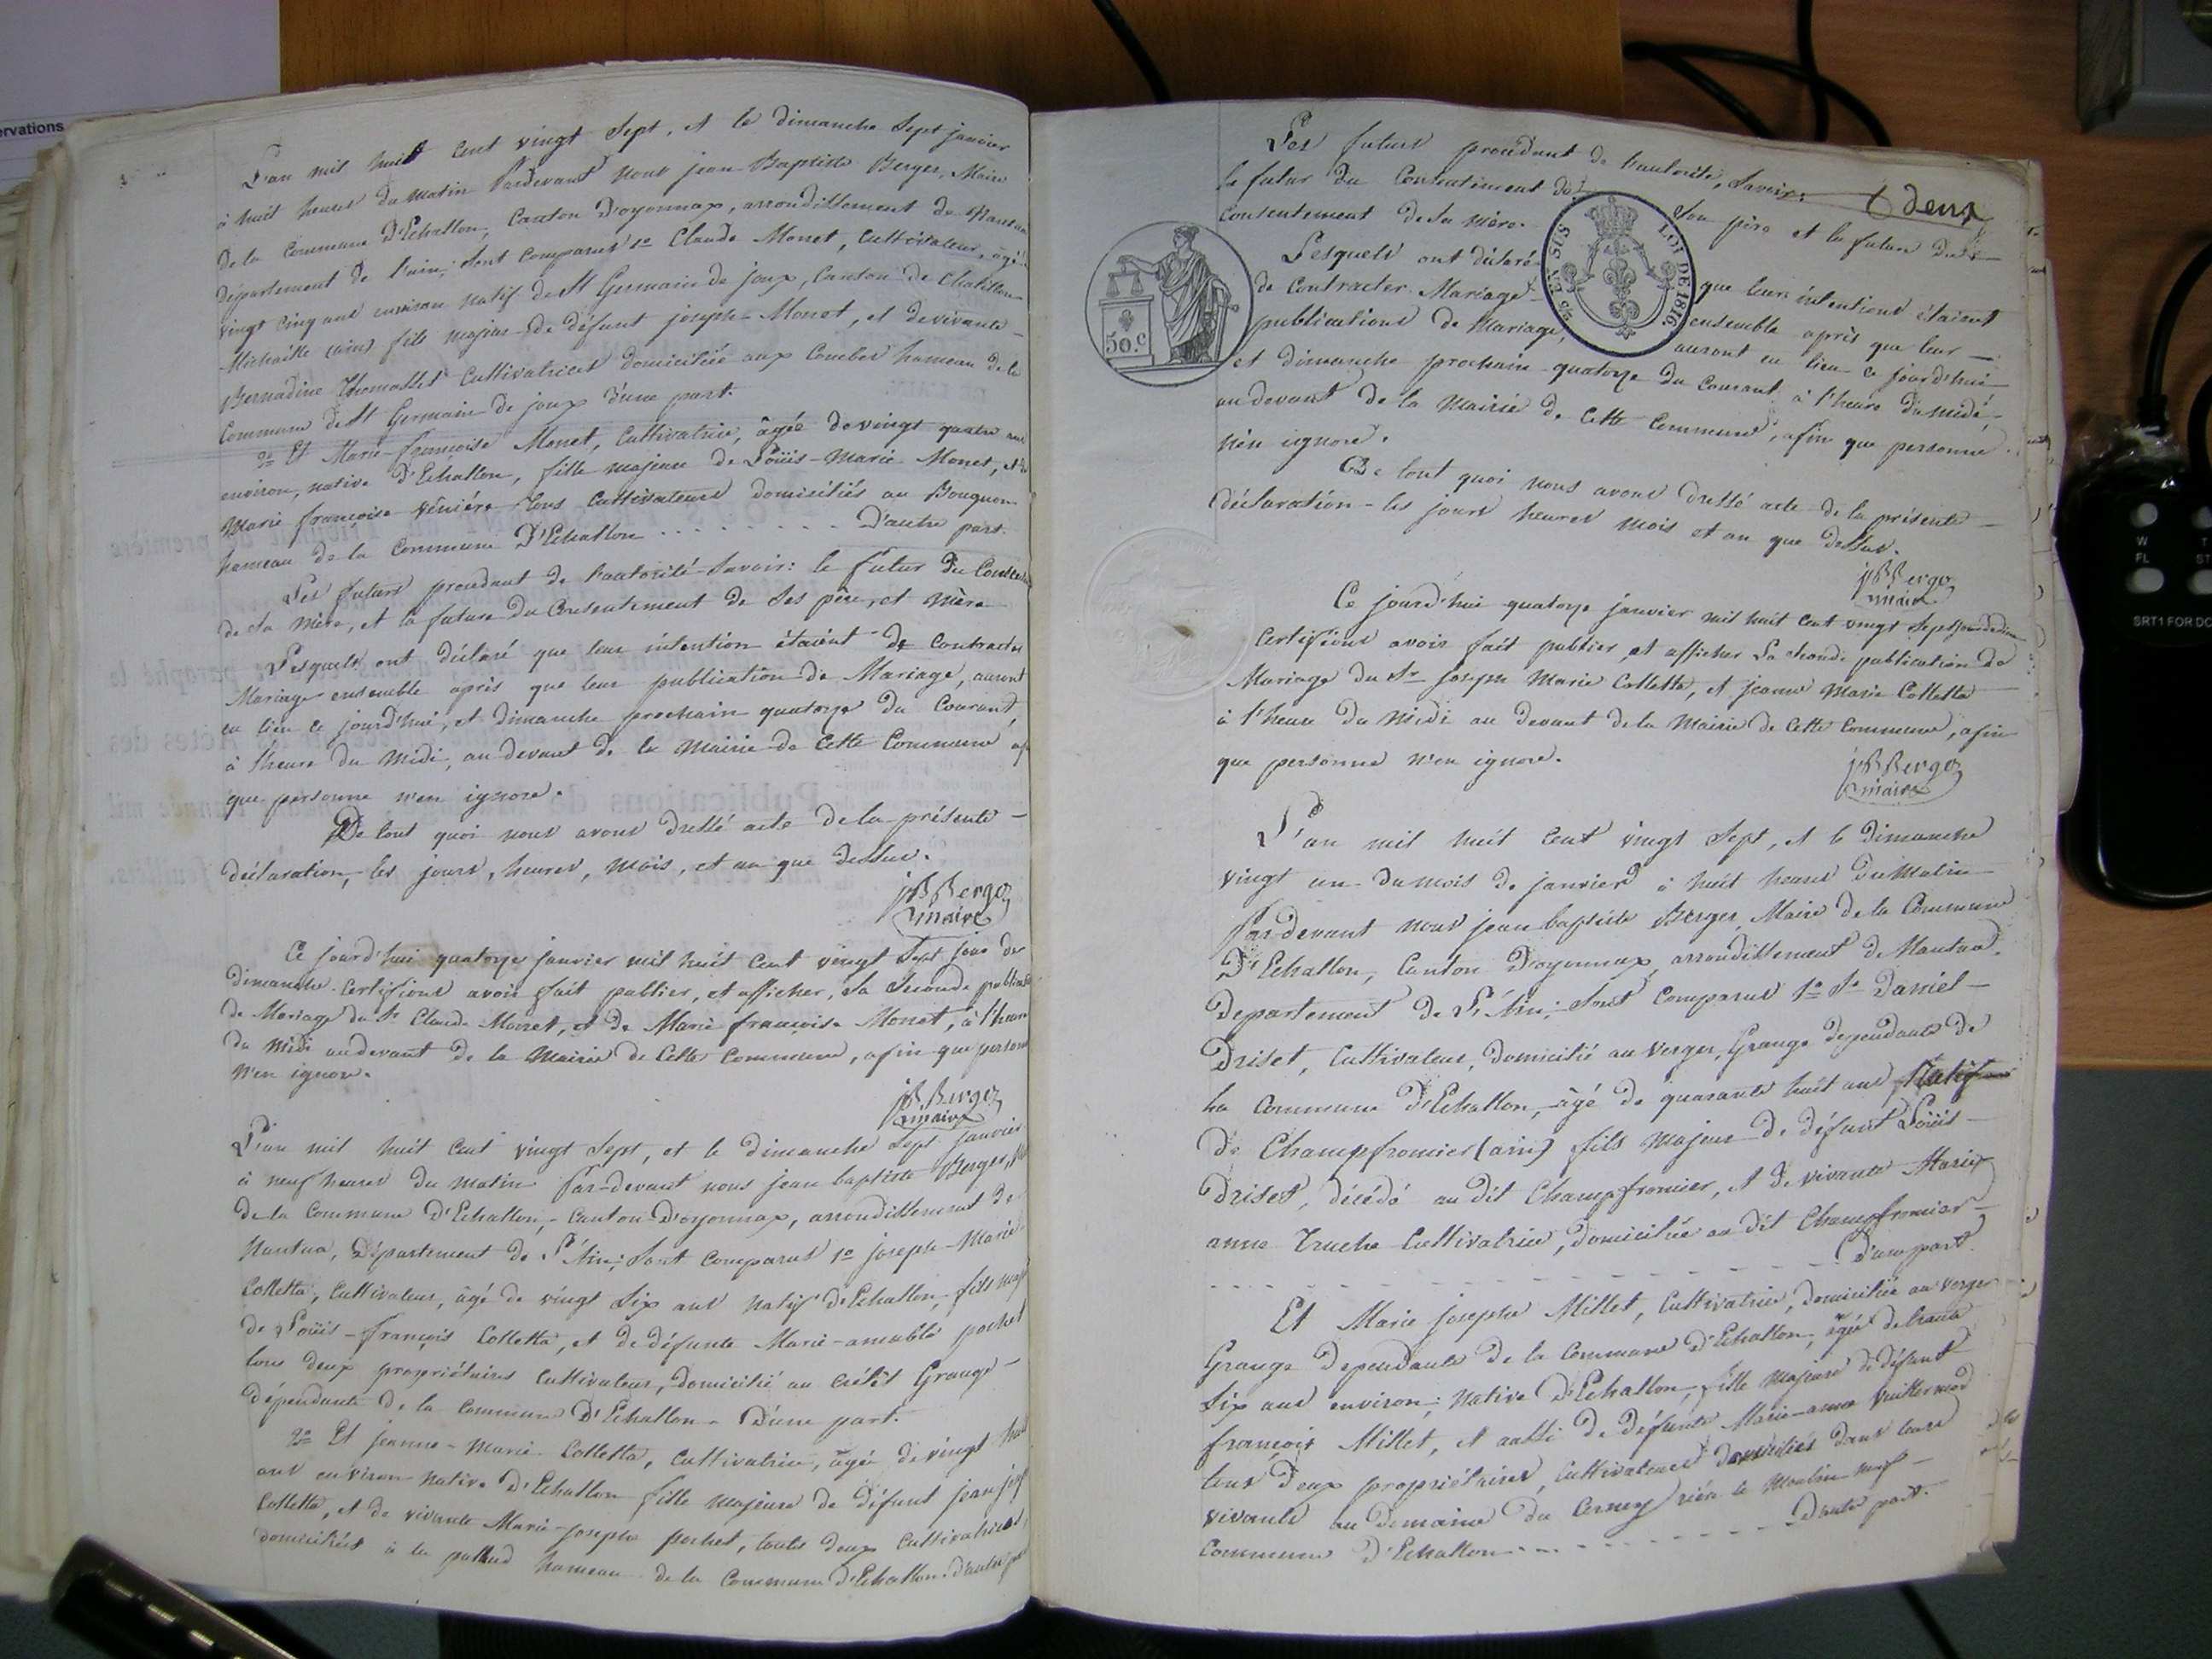 ervations
L'an mil huit cent vingt sept, et le dimanche sept janvier
à huit heures du matin Pardevant nous jean-Baptiste Berger, Maire
de la Commune D'Echallon, Canton D'oyonnax, arrondissement de Nantua
département de l'ain; sont comparus 1º Claude Monet, Cultivateur, agé
vingt cinq ans environ natif de St Germain de joux, Canton de Chatillon
Michaille (ain) fils majeur de défunt joseph Monet, et de vivante
Bernadine Thomasset Cultivatrice domiciliée aux Combes hameau de la
Commune de St Germain de joux D'une part.
2º Et Marie françoise Monet, Cultivatrice, âgée de vingt quatre ans
environ, native d'Echallon, fille majeure de Loüis-Marie Monet, et de
Marie françoise vénière tous Cultivateurs domiciliés au Bouquon
hameau de la Commune D'Echallon . . . . . . . . D'autre part.
Les futurs procedant de l'autorité savoir: le futur du Conse
de sa mère, et la future du Consentement de ses père, et mère
Lesquels ont déclaré que leur intention étaient de Contracter
Mariage ensemble après que leur publication de Mariage, auront
eu lieu ce jourd'hui, et dimanche prochain quatorze du Courant,
à l'heure du midi, au devant de la Mairie de cette Commune af
que personne n'en ignore.
De tout quoi nous avons dressé acte de la présente
déclaration, les jours, heures, mois, et an que dessus.
jB Berger
maire
Ce jourd'hui quatorze janvier mil huit cent vingt sept jour de
dimanche. Certifions avoir fait publier, et afficher, la seconde publicat
de Mariage du Sr Claude Monet, et de Marie françoise Monet, à l'heure
du midi audevant de la Mairie de Cette Commune, afin que personne
n'en ignore.
jB Berger
maire
L'an mil huit cent vingt sept, et le dimanche sept janvier
à neuf heures du matin Par-devant nous jean baptiste Berger, M
de la Commune D'Echallon, Canton D'oyonnax, arrondissement de
Nantua, Département de L'Ain; sont comparus 1º joseph-Marie
Colletta, Cultivateur, âgé de vingt six ans natif d'Echallon, fils maj
de Loüis-françois Colletta, et de défunte Marie-amable pochet
tous deux propriétaires Cultivateur, domicilié au Crétêt Grange
dépendante de la Commune D'Echallon. D'une part.
2º Et jeanne-Marie Colletta, Cultivatrice, âgé de vingt
ans environ native D'Echallon fille majeure de défunt jean jos
Colletta, et de vivante Marie-joseph pochet, toutes deux Cultivatrices,
domiciliées à la palud hameau de la Commune d'Echallon. D'autre part
Les futurs procedant de l'autorité, savoir: deux
le futur du Consentement de son père et la future du
Consentement de sa mère.
Lesquels ont déclaré que leurs intentions étaient
de Contracter Mariage ensemble après que leur
publications de Mariage, auront eu lieu ce jourd'hui
et dimanche prochain quatorze du Courant à l'heure du midi,
au devant de la Mairie de Cette Commune, afin que personne
n'en ignore.
50.C
EN SUS
LOI DE 1816
De tout quoi nous avons dressé acte de la présente
déclaration les jours heures mois et an que dessus.
jB Berger
maire
Ce jourd'hui quatorze janvier mil huit cent vingt sept jour de dim
Certifions avoir fait publier, et afficher la seconde publication de
Mariage du Sr joseph Marie Colletta, et jeanne Marie Colletta
à l'heure du Midi au devant de la Mairie de Cette Commune, afin
que personne n'en ignore.
jB Berger
maire
L'an mil huit Cent vingt sept, et le Dimanche
vingt un du mois de janvier à huit heures du Matin
Par-devant nous jean baptiste Berger, Maire de la Commune
D'Echallon, Canton D'oyonnax, arrondissement de Nantua,
Departement de L'Ain; sont comparus 1º Sr Daniel
Driset, Cultivateur, domicilié au verger, Grange dependante de
la Commune d'Echallon, âgé de quarante huit ans Natif
de Champfromier (ain) fils majeur de défunt Loüis
Driset, décédé au dit Champfromier, et de vivante Marie
anne Truche Cultivatrice, domiciliée au dit Champfromier
D'une part.
Et Marie josephe Millet, Cultivatrice, domiciliée au verger
Grange dependante de la Commune d'Echallon, âgée de trente
six ans environ; native D'Echallon, fille majeure de défunt
françois Millet, et aussi de défunte Marie-anne Vuillermod
tous deux propriétaires, Cultivateurs domiciliés dans leurs
vivants au Domaine du Cerney rière le Moulin neuf
Commune d'Echallon D'autre part.
W
FL
SRT1 FOR DC